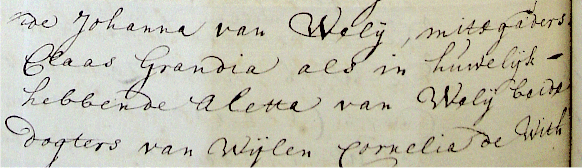 nde Johanna van Welij, mitsgaders
Claas Grandia als in huwelijk-
hebbende Aletta van Welij beide
dogters van Wijlen Cornelia de With